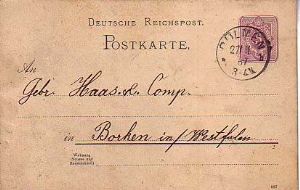 DEUTSCHE REICHSPOST.
POSTKARTE.
DÜLMEN
An
Gebr. Haas & Comp.
in Borken in/Westfalen
Wohnung